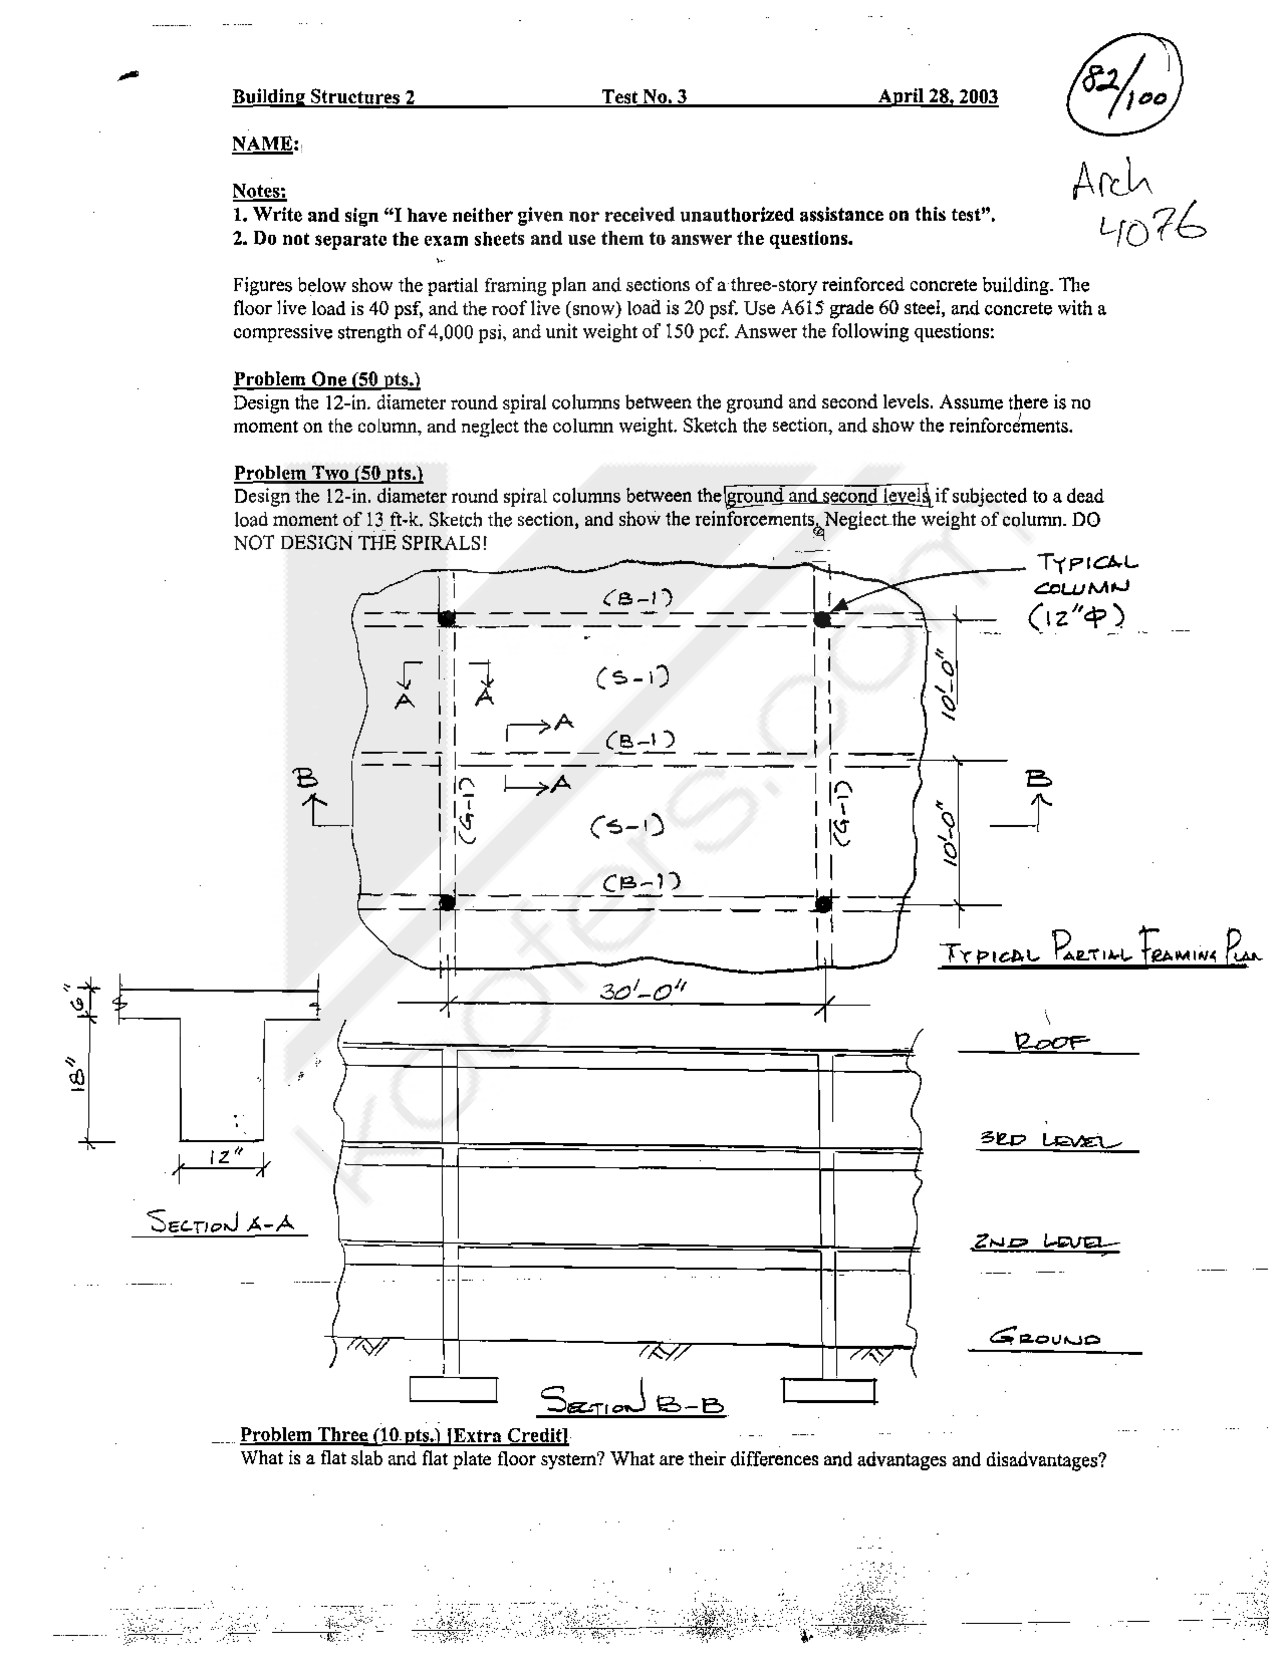 Building Structures 2 Test No. 3 April 28, 2003
82/100
NAME:
Arch
4076
Notes:
1. Write and sign “I have neither given nor received unauthorized assistance on this test”.
2. Do not separate the exam sheets and use them to answer the questions.
Figures below show the partial framing plan and sections of a three-story reinforced concrete building. The
floor live load is 40 psf, and the roof live (snow) load is 20 psf. Use A615 grade 60 steel, and concrete with a
compressive strength of 4,000 psi, and unit weight of 150 pcf. Answer the following questions:
Problem One (50 pts.)
Design the 12-in. diameter round spiral columns between the ground and second levels. Assume there is no
moment on the column, and neglect the column weight. Sketch the section, and show the reinforcements.
Problem Two (50 pts.)
Design the 12-in. diameter round spiral columns between the ground and second levels if subjected to a dead
load moment of 13 ft-k. Sketch the section, and show the reinforcements. Neglect the weight of column. DO
NOT DESIGN THE SPIRALS!
TYPICAL
COLUMN
(12"Φ)
(B-1)
(S-1)
A A
A
(B-1)
A
10'-0"
B
B
(G-1)
(S-1)
(G-1)
10'-0"
(B-1)
TYPICAL PARTIAL FRAMING PLAN
30'-0"
6"
18"
12"
SECTION A-A
ROOF
3RD LEVEL
2ND LEVEL
GROUND
SECTION B-B
koofers.com
Problem Three (10 pts.) [Extra Credit]
What is a flat slab and flat plate floor system? What are their differences and advantages and disadvantages?